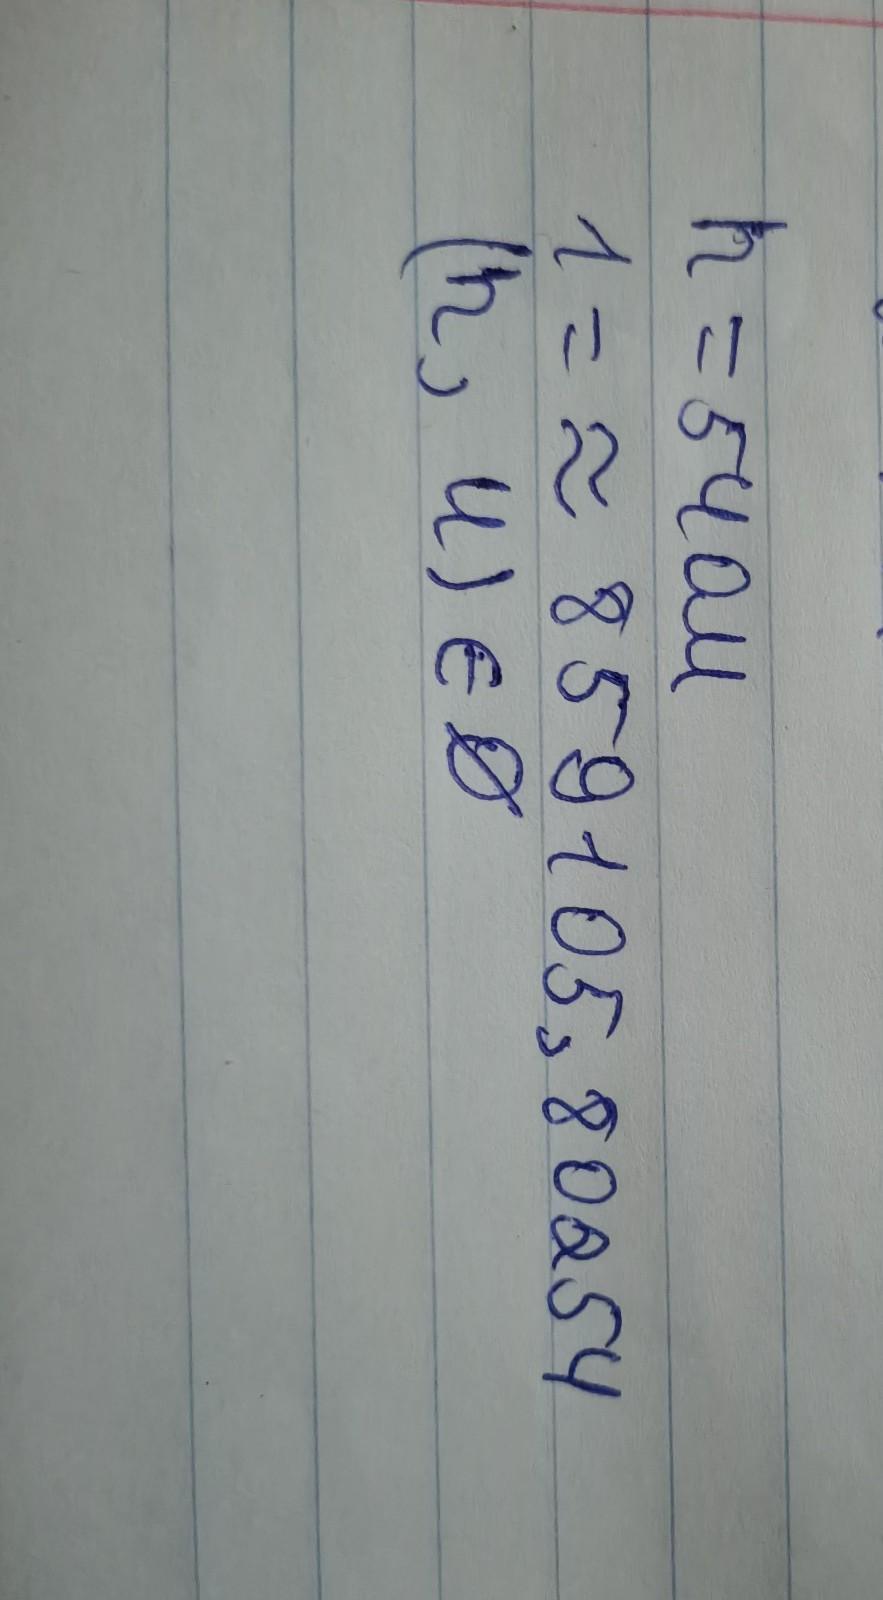 h = 540u
1 = ≈ 8559105,80254
(h, u) ∈ ∅